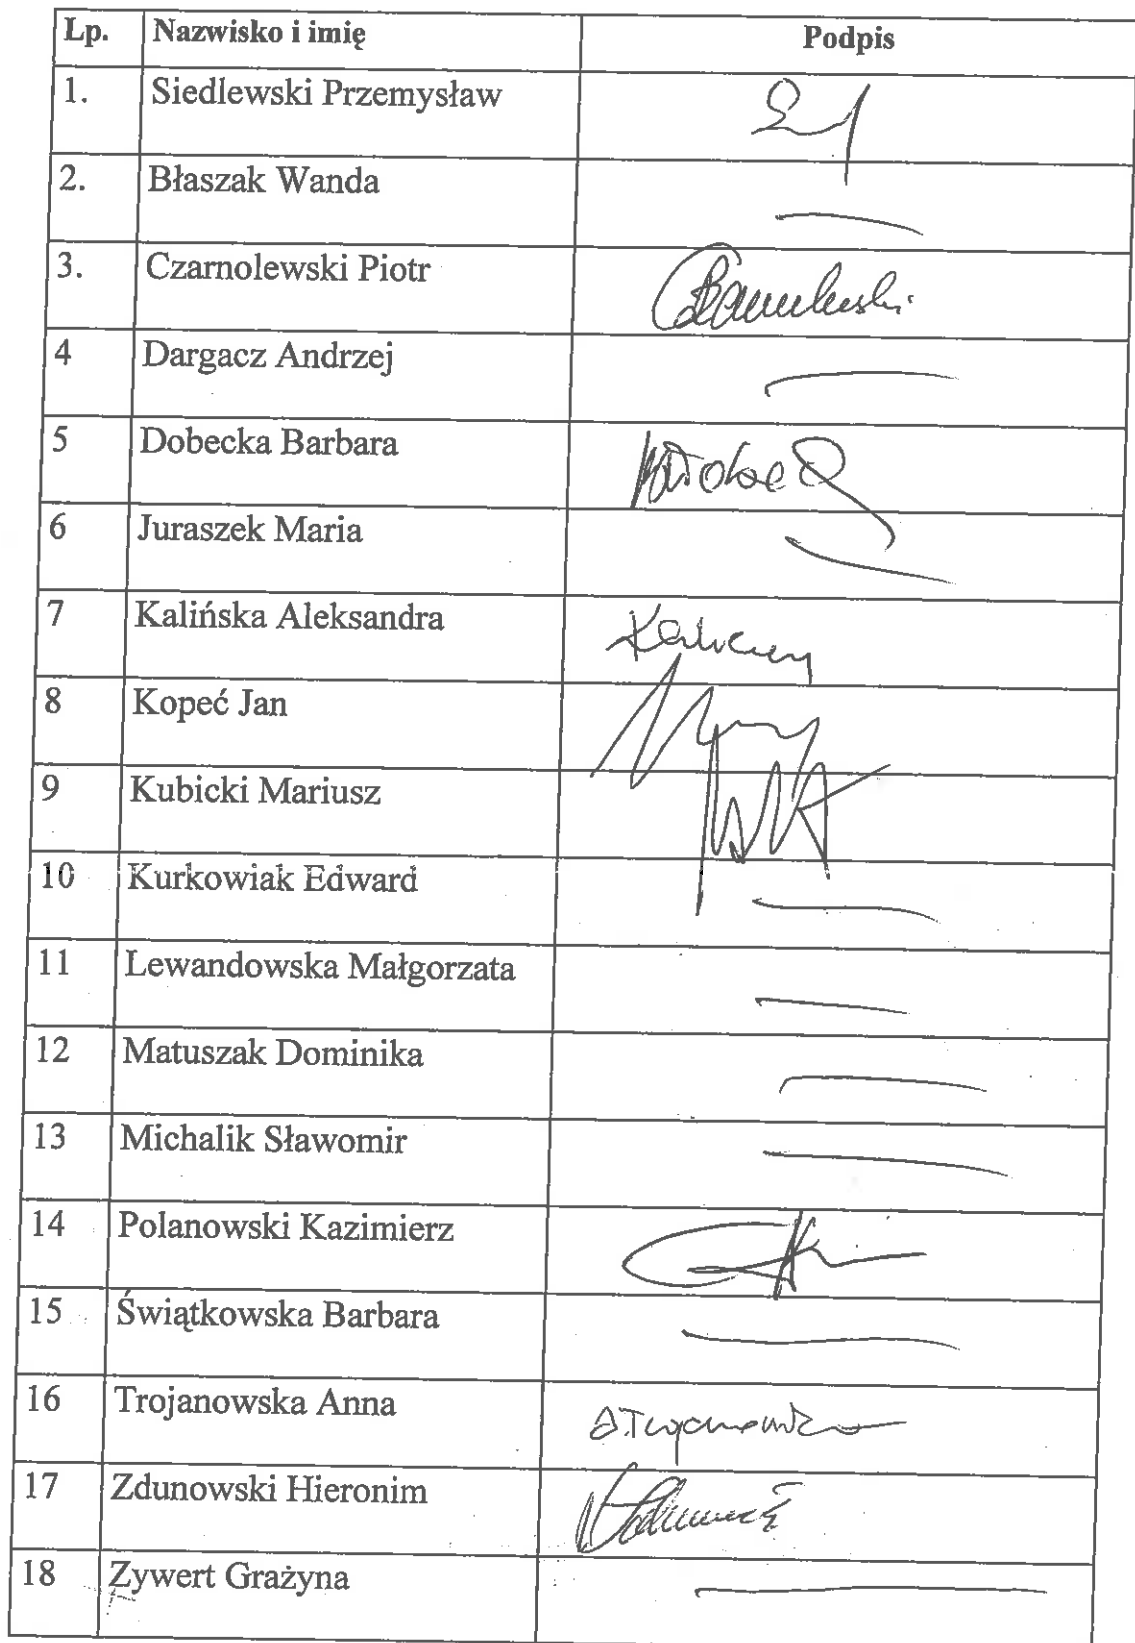 Lp. Nazwisko i imię Podpis
1. Siedlewski Przemysław
2. Błaszak Wanda
3. Czarnolewski Piotr
4 Dargacz Andrzej
5 Dobecka Barbara
6 Juraszek Maria
7 Kalińska Aleksandra
8 Kopeć Jan
9 Kubicki Mariusz
10 Kurkowiak Edward
11 Lewandowska Małgorzata
12 Matuszak Dominika
13 Michalik Sławomir
14 Polanowski Kazimierz
15 Świątkowska Barbara
16 Trojanowska Anna
17 Zdunowski Hieronim
18 Zywert Grażyna